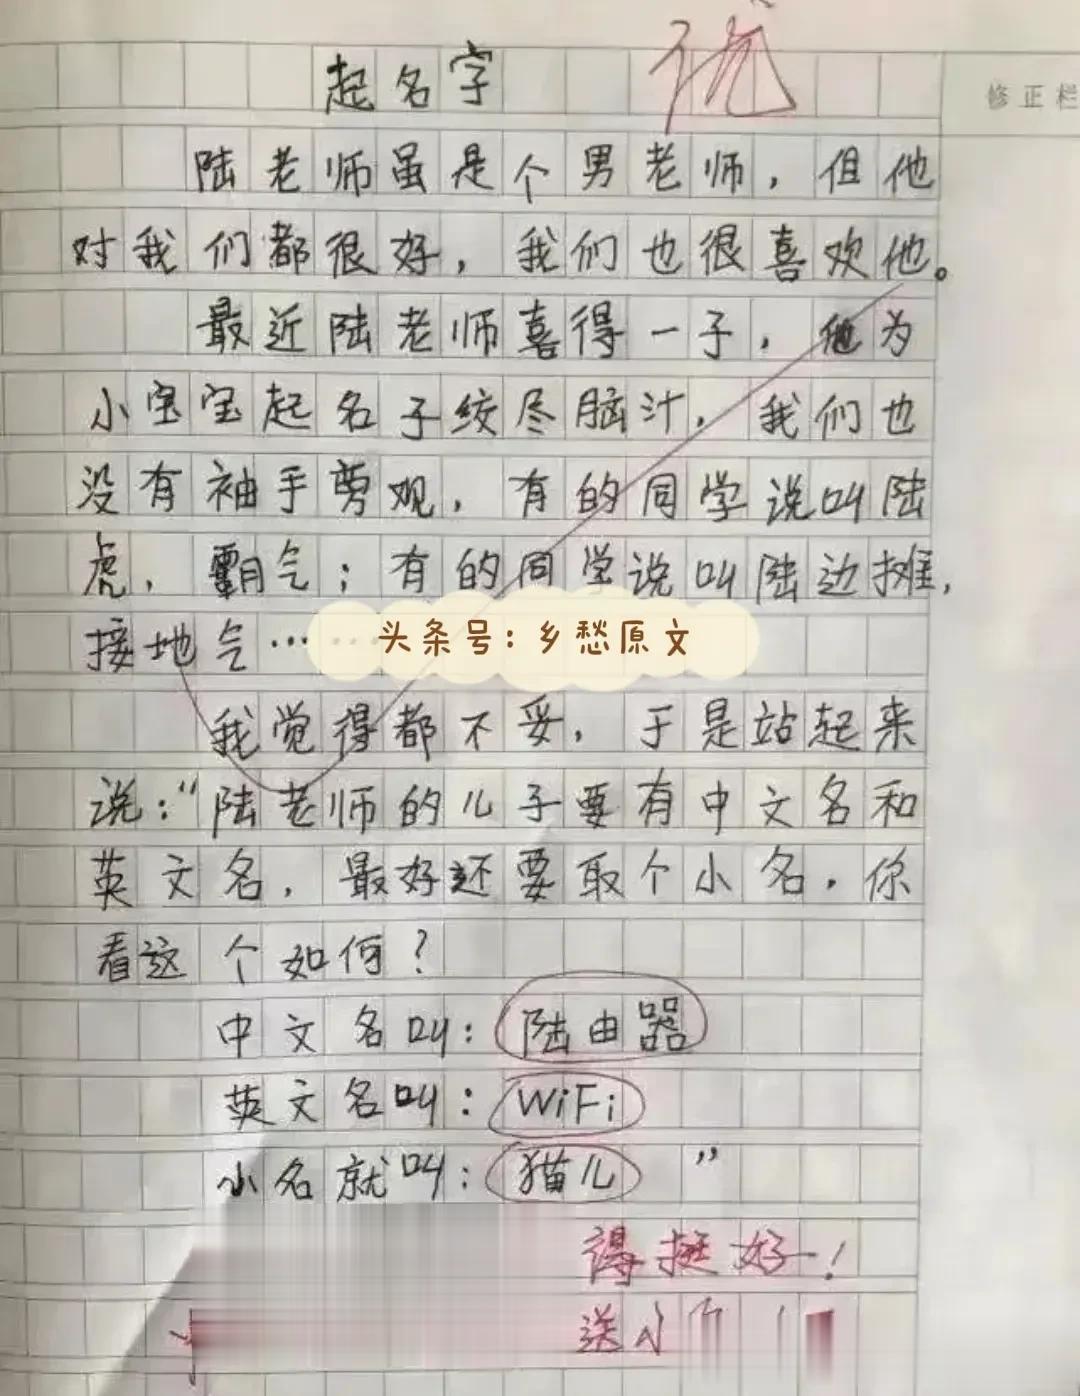 起名字
优
修正栏
陆老师虽是个男老师，但他
对我们都很好，我们也很喜欢他。
最近陆老师喜得一子，他为
小宝宝起名子绞尽脑汁，我们也
没有袖手旁观，有的同学说叫陆
虎，霸气；有的同学说叫陆边摊，
接地气……
头条号：乡愁原文
我觉得都不妥，于是站起来
说：“陆老师的儿子要有中文名和
英文名，最好还要取个小名，你
看这个如何？
中文名叫：陆由器
英文名叫：WiFi
小名就叫：猫儿”
得挺好！
送小